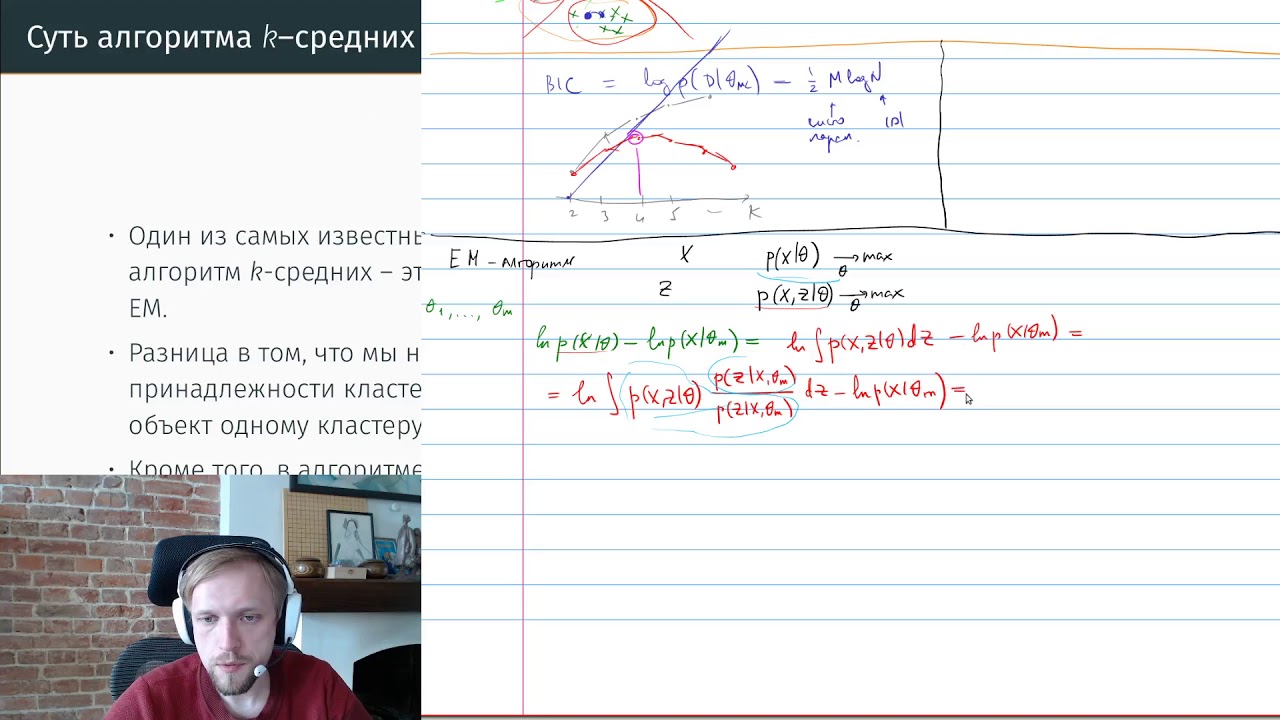 Суть алгоритма k–средних
· Один из самых известны
алгоритм k-средних – эт
EM.
· Разница в том, что мы н
принадлежности класте
объект одному кластеру
· Кроме того, в алгоритме
BIC = log p(D|θ_ML) − 1/2 M log N
число |D|
парам.
2 3 4 5 – K
EM – алгоритм X p(X|θ) →_θ max
Z p(X,Z|θ) →_θ max
θ₁, ..., θ_m
ln p(X|θ) − ln p(X|θ_m) = ln ∫ p(X,Z|θ) dZ − ln p(X|θ_m) =
= ln ∫ p(X,Z|θ) p(Z|X,θ_m)/p(Z|X,θ_m) dZ − ln p(X|θ_m) =